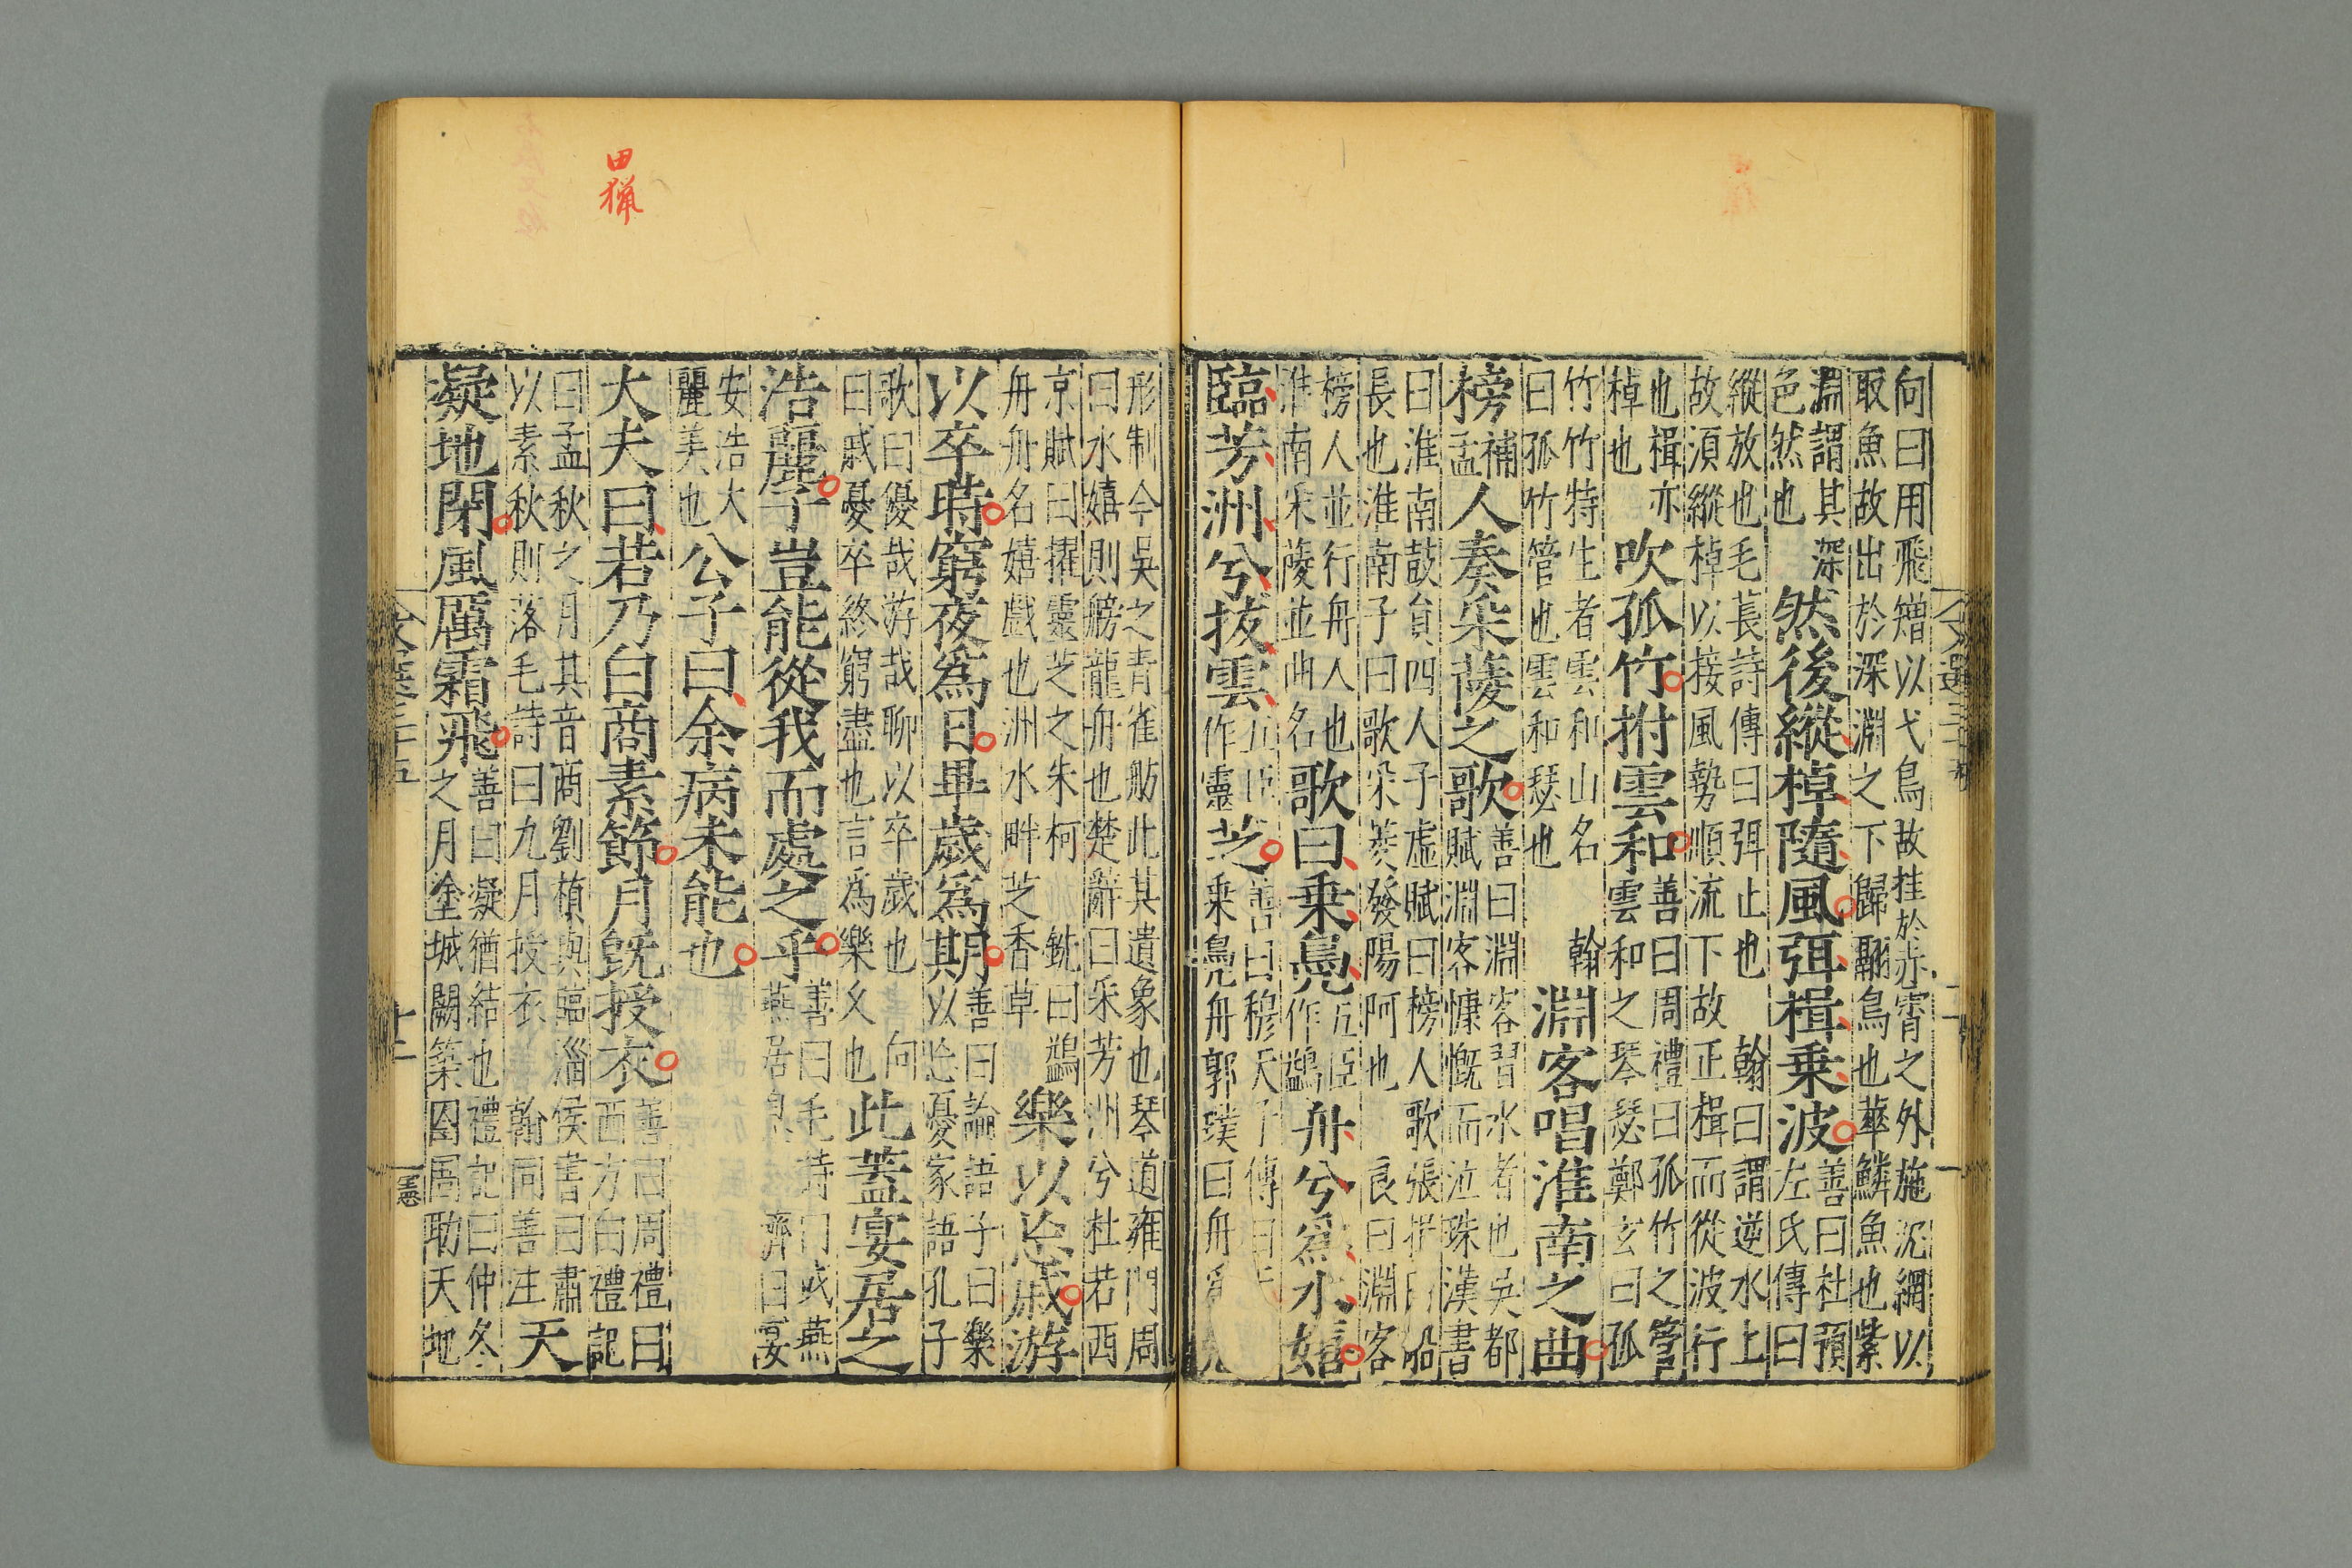 向曰用飛矰以弋鳥故挂於赤霄之外施沉網以
取魚故出於深淵之下歸翮鳥也華鱗魚也紫
淵謂其深
色然也
然後縱棹隨風弭楫乗波
善曰杜預
左氏傳曰
縱放也毛萇詩傳曰弭止也 翰曰謂逆水上
故湏縱棹以接風勢順流下故正楫而從波行
也楫亦
棹也
吹孤竹拊雲和
善曰周禮曰孤竹之管
雲和之琴瑟鄭玄曰孤
竹竹特生者雲和山名 翰
曰孤竹管也雲和瑟也
淵客唱淮南之曲
榜
補
孟
人奏采菱之歌
善曰淵客習水者也吳都
賦淵客慷慨而泣珠漢書
曰淮南鼓貟四人子虚賦曰榜人歌張揖曰船
長也淮南子曰歌采菱發陽阿也 良曰淵客
榜人並行舟人也
淮南采菱並曲名
歌曰乗鳧
五臣
作鷁
舟兮爲水嬉
臨芳洲兮拔雲
五臣
作靈
芝
善曰穆天子傳曰天
乗鳧舟郭璞曰舟爲
形制今吳之青雀舫此其遺象也琴道雍門周
曰水嬉則舫龍舟也楚辭曰采芳洲兮杜若西
京賦曰擢靈芝之朱柯 銑曰鷁
舟舟名嬉戲也洲水畔芝香草
樂以忘戚游
以卒時窮夜爲日畢歲爲期
善曰論語子曰樂
以忘憂家語孔子
歌曰優哉游哉聊以卒歲也 向
曰戚憂卒終窮盡也言爲樂久也
此蓋宴居之
浩麗子豈能從我而處之乎
善曰毛詩曰或燕
燕居息 濟曰宴
安浩大
麗美也
公子曰余病未能也
大夫曰若乃白商素節月旣授衣
善曰周禮曰
西方白禮記
曰孟秋之月其音商劉楨與臨淄侯書曰肅
以素秋則落毛詩曰九月授衣 翰同善注
天
凝地閉風厲霜飛
善曰凝猶結也禮記曰仲冬
之月塗城闕築囹圄助天地
文選三十五
十二
田猟